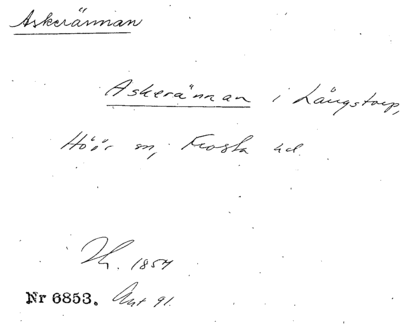 Askerännan
Askerännan i Långstorp,
Höör sn, Frosta hd.
1857
Nr 6853. Ant 91.